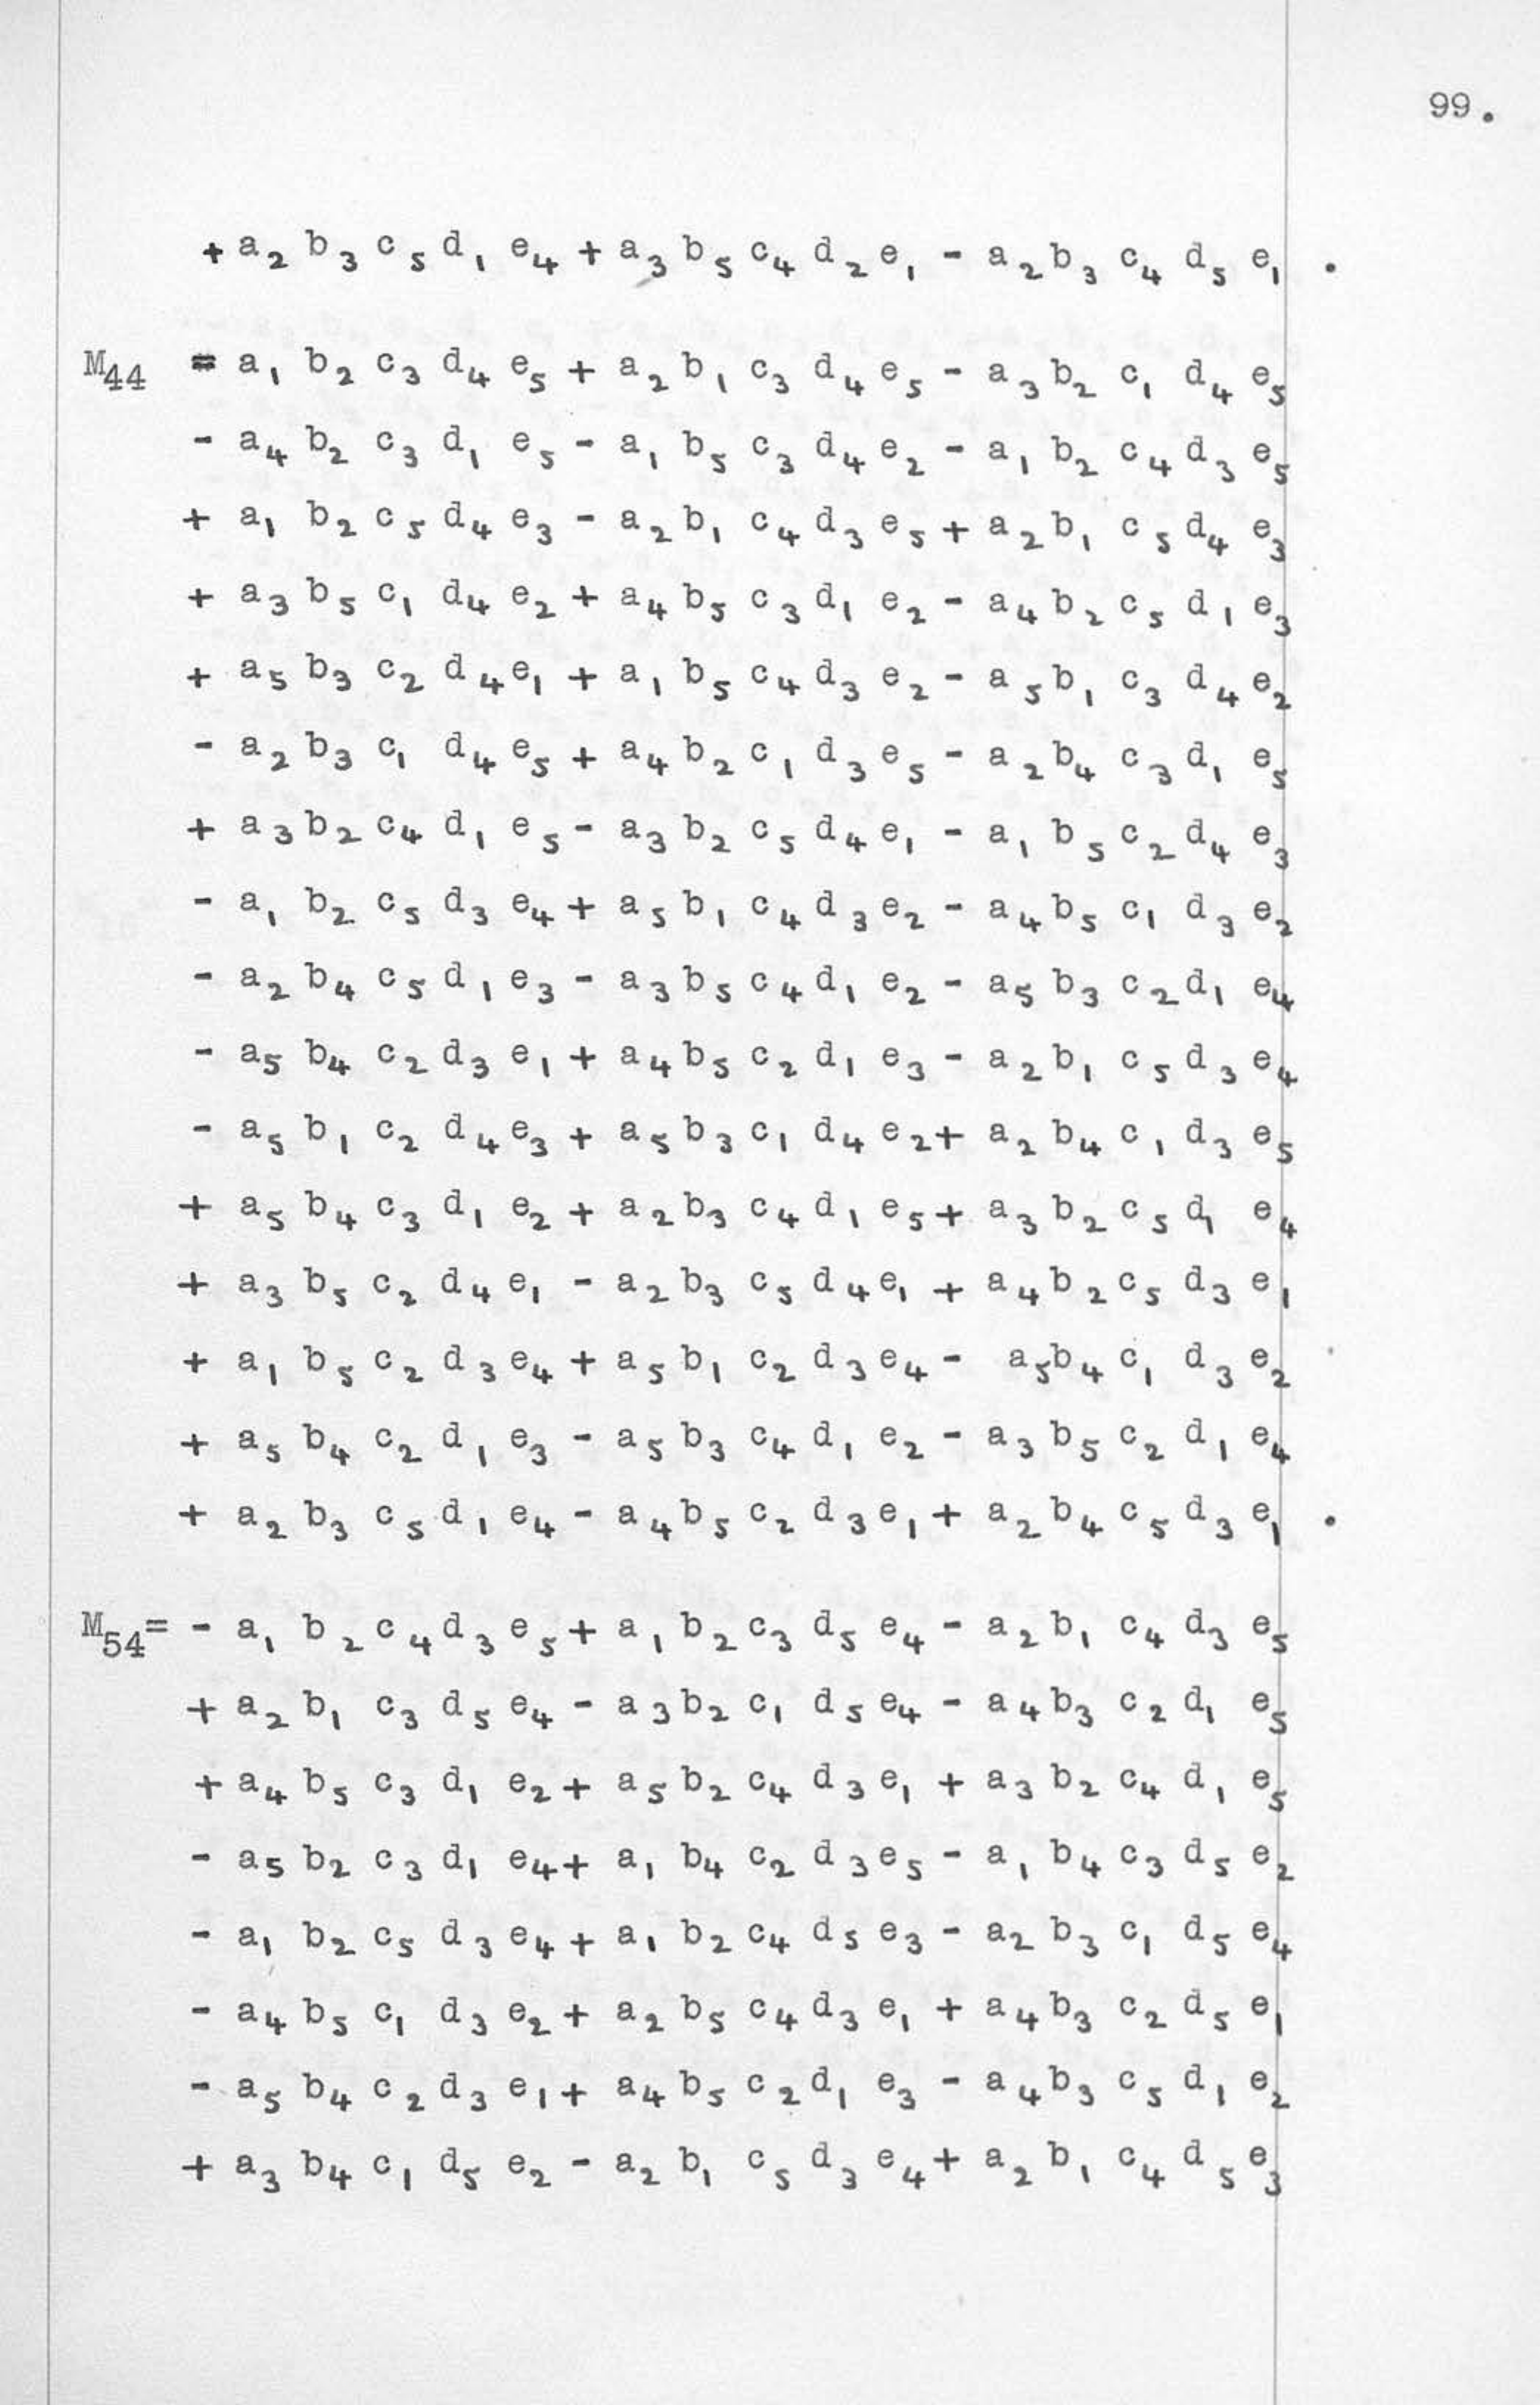 99.
+ a₂ b₃ c₅ d₁ e₄ + a₃ b₅ c₄ d₂ e₁ - a₂ b₃ c₄ d₅ e₁ .
M₄₄ = a₁ b₂ c₃ d₄ e₅ + a₂ b₁ c₃ d₄ e₅ - a₃ b₂ c₁ d₄ e₅
- a₄ b₂ c₃ d₁ e₅ - a₁ b₅ c₃ d₄ e₂ - a₁ b₂ c₄ d₃ e₅
+ a₁ b₂ c₅ d₄ e₃ - a₂ b₁ c₄ d₃ e₅ + a₂ b₁ c₅ d₄ e₃
+ a₃ b₅ c₁ d₄ e₂ + a₄ b₅ c₃ d₁ e₂ - a₄ b₂ c₅ d₁ e₃
+ a₅ b₃ c₂ d₄ e₁ + a₁ b₅ c₄ d₃ e₂ - a₅ b₁ c₃ d₄ e₂
- a₂ b₃ c₁ d₄ e₅ + a₄ b₂ c₁ d₃ e₅ - a₂ b₄ c₃ d₁ e₅
+ a₃ b₂ c₄ d₁ e₅ - a₃ b₂ c₅ d₄ e₁ - a₁ b₅ c₂ d₄ e₃
- a₁ b₂ c₅ d₃ e₄ + a₅ b₁ c₄ d₃ e₂ - a₄ b₅ c₁ d₃ e₂
- a₂ b₄ c₅ d₁ e₃ - a₃ b₅ c₄ d₁ e₂ - a₅ b₃ c₂ d₁ e₄
- a₅ b₄ c₂ d₃ e₁ + a₄ b₅ c₂ d₁ e₃ - a₂ b₁ c₅ d₃ e₄
- a₅ b₁ c₂ d₄ e₃ + a₅ b₃ c₁ d₄ e₂ + a₂ b₄ c₁ d₃ e₅
+ a₅ b₄ c₃ d₁ e₂ + a₂ b₃ c₄ d₁ e₅ + a₃ b₂ c₅ d₁ e₄
+ a₃ b₅ c₂ d₄ e₁ - a₂ b₃ c₅ d₄ e₁ + a₄ b₂ c₅ d₃ e₁
+ a₁ b₅ c₂ d₃ e₄ + a₅ b₁ c₂ d₃ e₄ - a₅ b₄ c₁ d₃ e₂
+ a₅ b₄ c₂ d₁ e₃ - a₅ b₃ c₄ d₁ e₂ - a₃ b₅ c₂ d₁ e₄
+ a₂ b₃ c₅ d₁ e₄ - a₄ b₅ c₂ d₃ e₁ + a₂ b₄ c₅ d₃ e₁ .
M₅₄ = - a₁ b₂ c₄ d₃ e₅ + a₁ b₂ c₃ d₅ e₄ - a₂ b₁ c₄ d₃ e₅
+ a₂ b₁ c₃ d₅ e₄ - a₃ b₂ c₁ d₅ e₄ - a₄ b₃ c₂ d₁ e₅
+ a₄ b₅ c₃ d₁ e₂ + a₅ b₂ c₄ d₃ e₁ + a₃ b₂ c₄ d₁ e₅
- a₅ b₂ c₃ d₁ e₄ + a₁ b₄ c₂ d₃ e₅ - a₁ b₄ c₃ d₅ e₂
- a₁ b₂ c₅ d₃ e₄ + a₁ b₂ c₄ d₅ e₃ - a₂ b₃ c₁ d₅ e₄
- a₄ b₅ c₁ d₃ e₂ + a₂ b₅ c₄ d₃ e₁ + a₄ b₃ c₂ d₅ e₁
- a₅ b₄ c₂ d₃ e₁ + a₄ b₅ c₂ d₁ e₃ - a₄ b₃ c₅ d₁ e₂
+ a₃ b₄ c₁ d₅ e₂ - a₂ b₁ c₅ d₃ e₄ + a₂ b₁ c₄ d₅ e₃